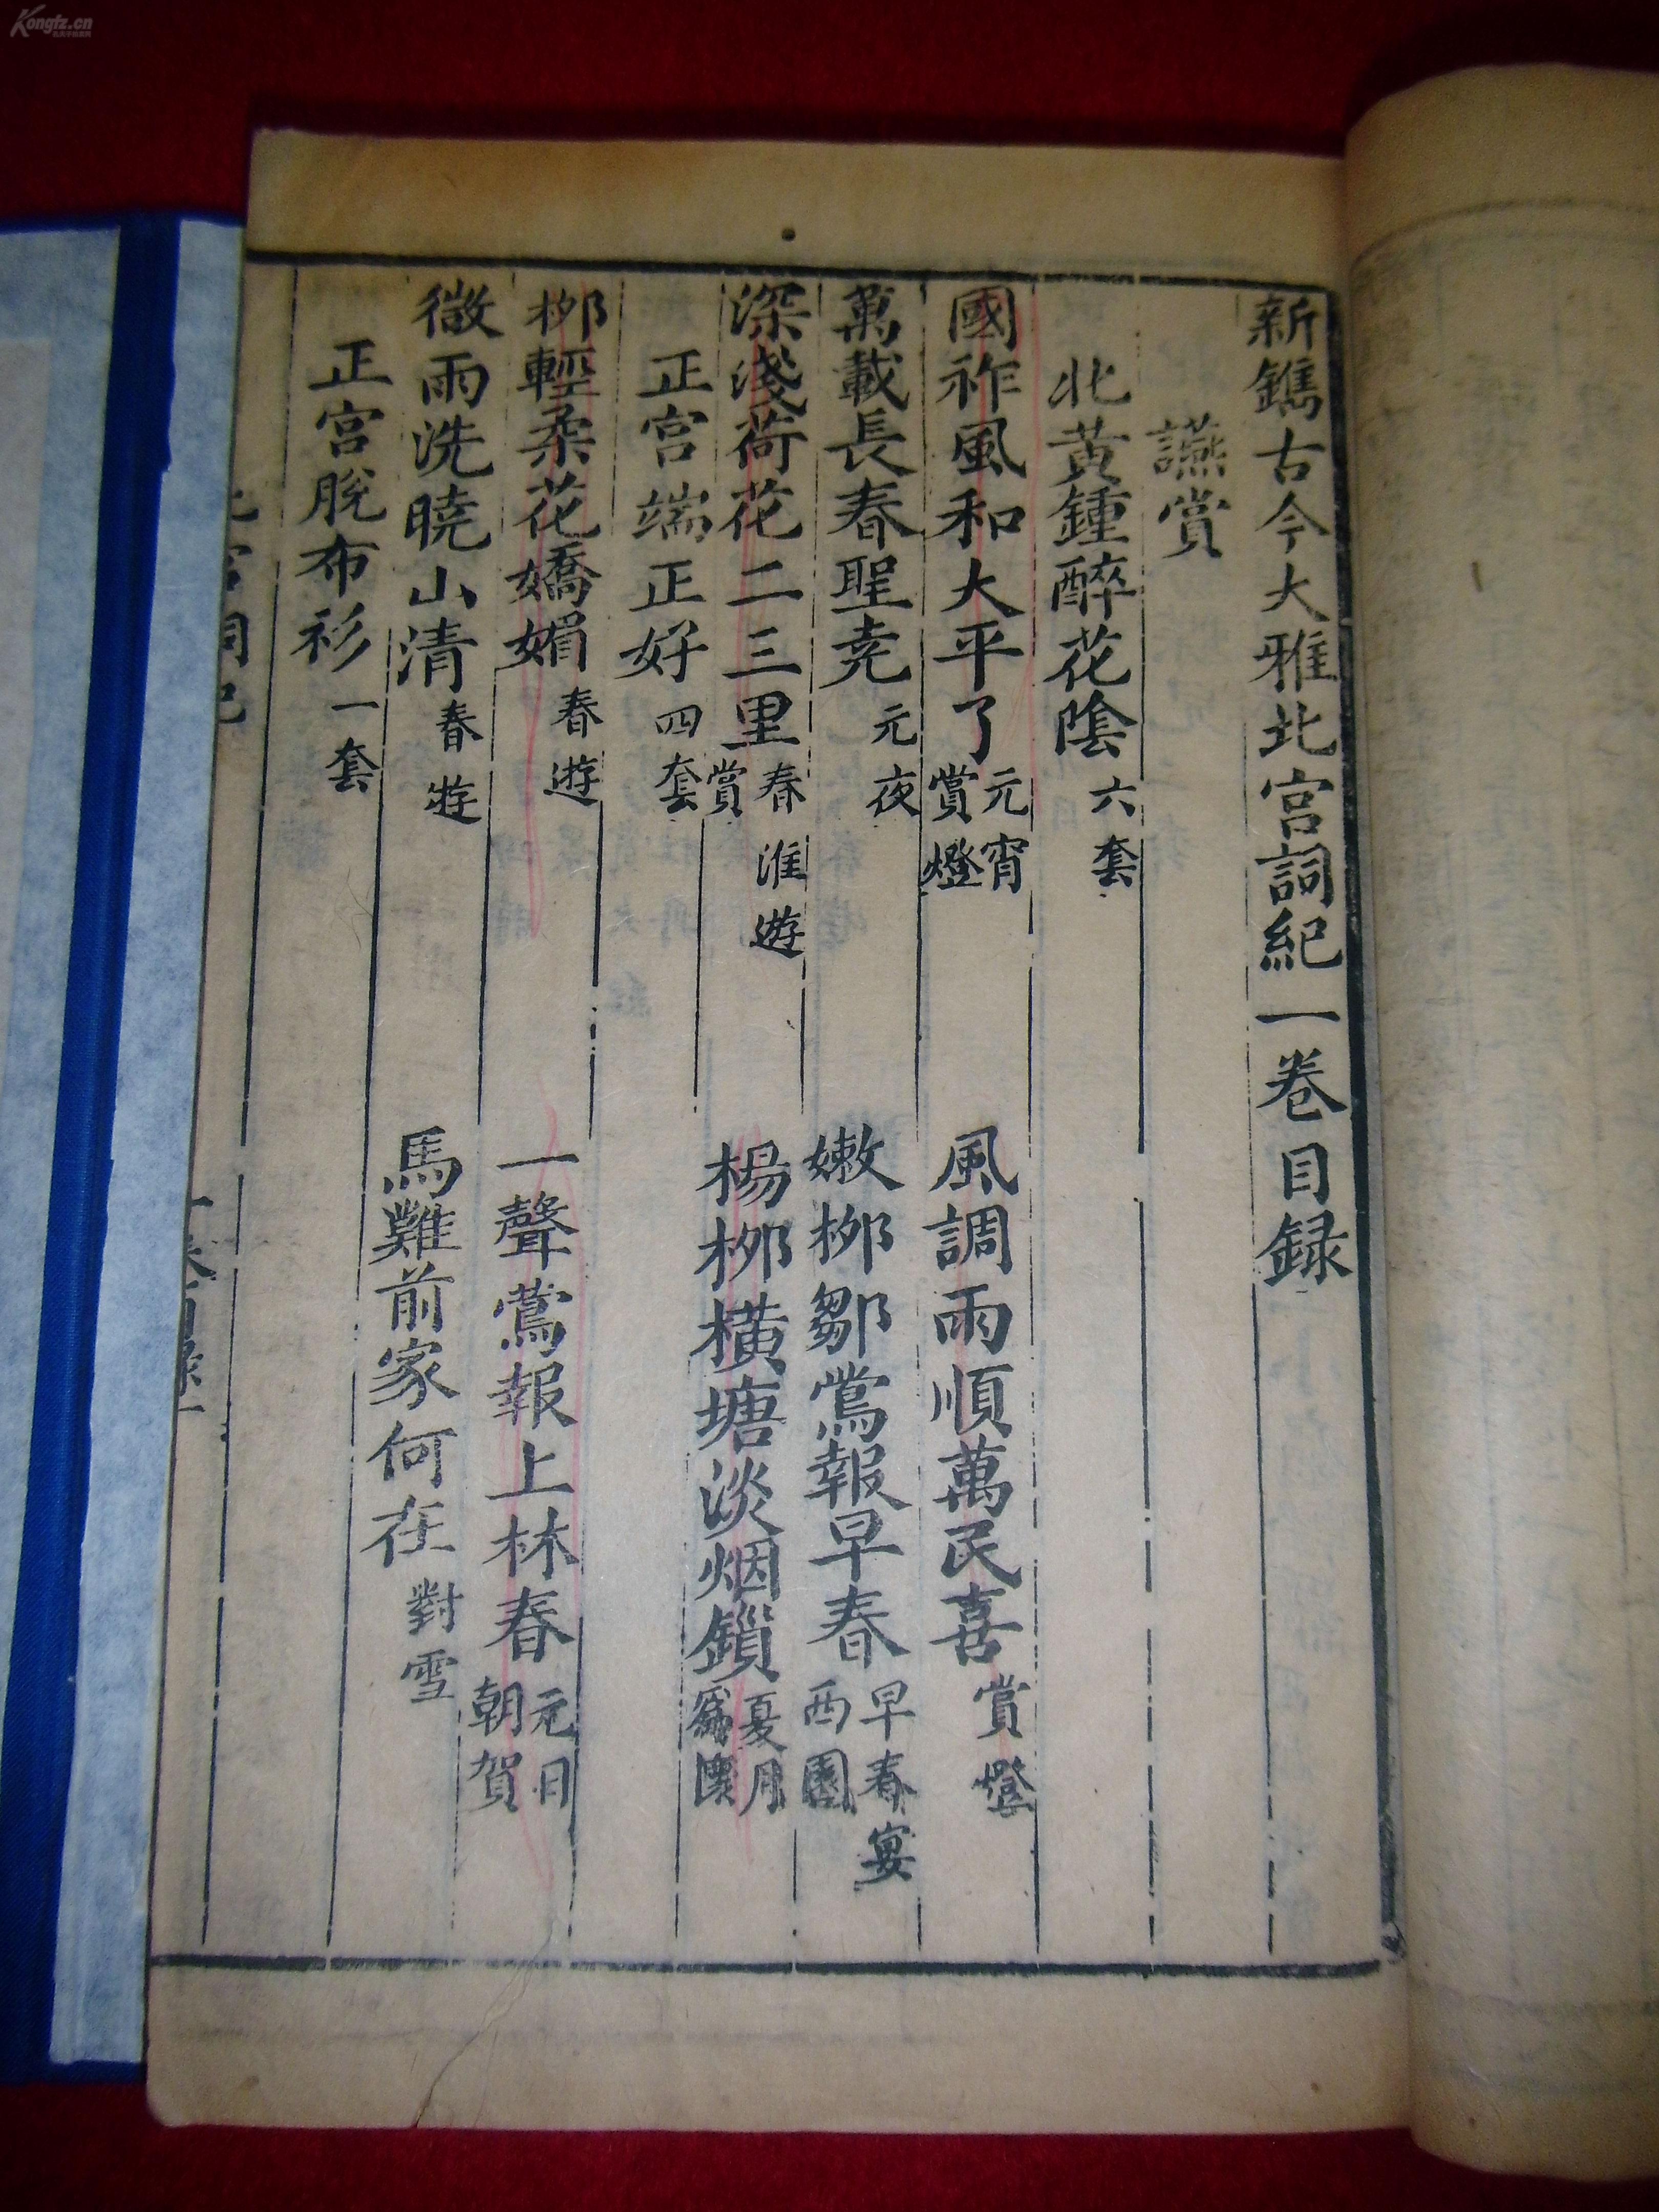 新鐫古今大雅北宮詞紀一卷目録
讌賞
北黃鍾醉花陰 六套
國祚風和大平了 元宵賞燈 風調雨順萬民喜 賞燈
萬載長春聖堯 元夜 嫩柳鄒鶯報早春 早春宴西園
深淺荷花二三里 春淮遊賞 楊柳橫塘淡烟鎖 夏月
正宮端正好 四套
柳輕柔花嬌媚 春遊 一聲鶯報上林春 元日朝賀
微雨洗曉山清 春遊 馬難前家何在 對雪
正宮脫布衫 一套
Kongfz.cn